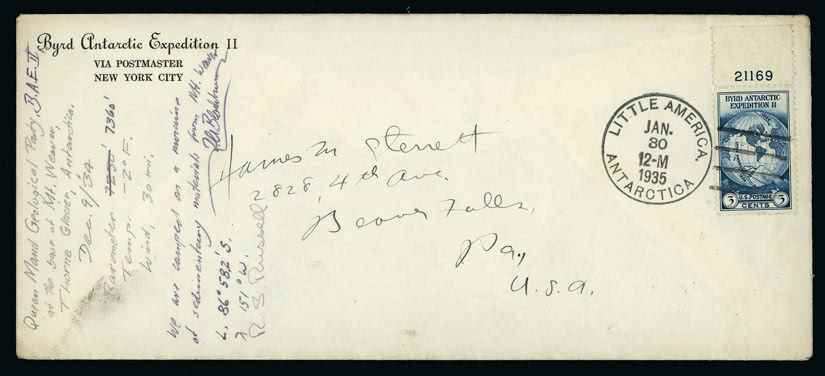 Byrd Antarctic Expedition II
VIA POSTMASTER
NEW YORK CITY
Queen Maud Geological Party, B.A.E. II,
at the base of Mt. Weaver,
Thorne Glacier, Antarctica.
Dec. 9/34
Barometer 7360'
Temp. -2° F.
Wind, 30 mi.
We are camped on a moraine
of sedimentary materials from Mt. Weaver
L. 86° 58.2' S.
λ 151° W.
R. S. Russell
James M Sterrett
2828, 4th Ave.
Beaver Falls,
Pa,
U.S.A.
LITTLE AMERICA,
JAN.
30
12-M
1935
ANTARCTICA
21169
BYRD ANTARCTIC
EXPEDITION II
U.S. POSTAGE
3 CENTS 3